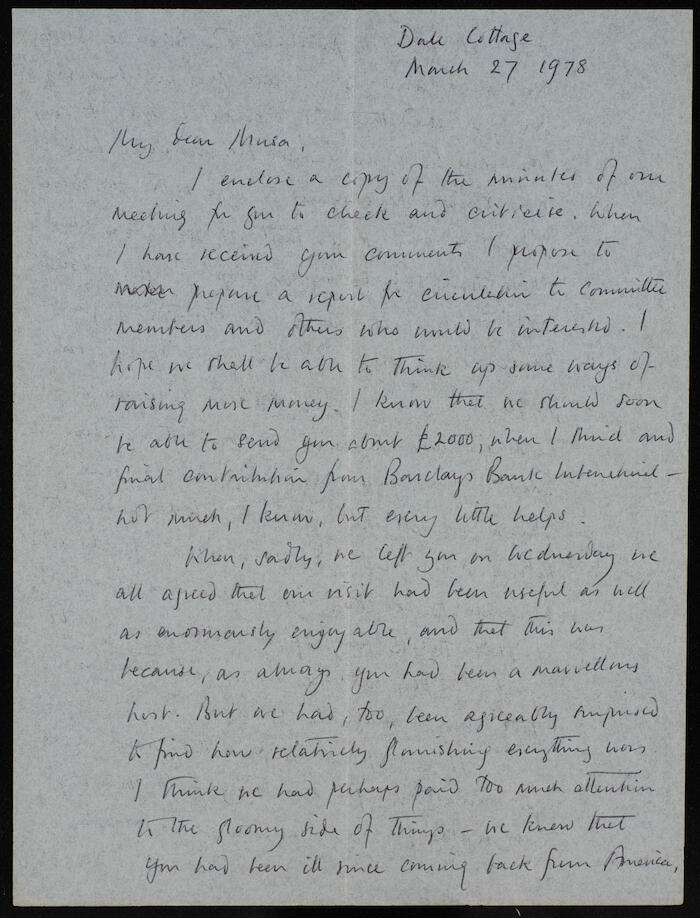 Dale Cottage
March 27 1978
My dear Musa,
I enclose a copy of the minutes of our
meeting for you to check and criticise. When
I have received your comments I propose to
prepare a report for circulation to committee
members and others who would be interested. I
hope we shall be able to think up some ways of
raising more money. I know that we should soon
be able to send you about £2000, when I third and
final contribution from Barclays Bank International –
not much, I know, but every little helps.
When, sadly, we left you on Wednesday we
all agreed that our visit had been useful as well
as enormously enjoyable, and that this was
because, as always, you had been a marvellous
host. But we had, too, been agreeably surprised
to find how relatively flourishing everything was.
I think we had perhaps paid too much attention
to the gloomy side of things – we knew that
you had been ill since coming back from America,